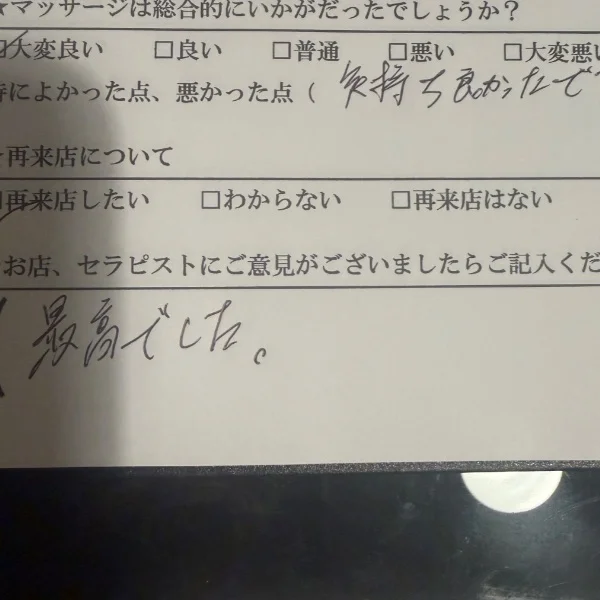 ★マッサージは総合的にいかがだったでしょうか？
☑大変良い □良い □普通 □悪い □大変悪い
特によかった点、悪かった点（ 気持ち良かったで
再来店について
☑再来店したい □わからない □再来店はない
お店、セラピストにご意見がございましたらご記入くだ
最高でした。